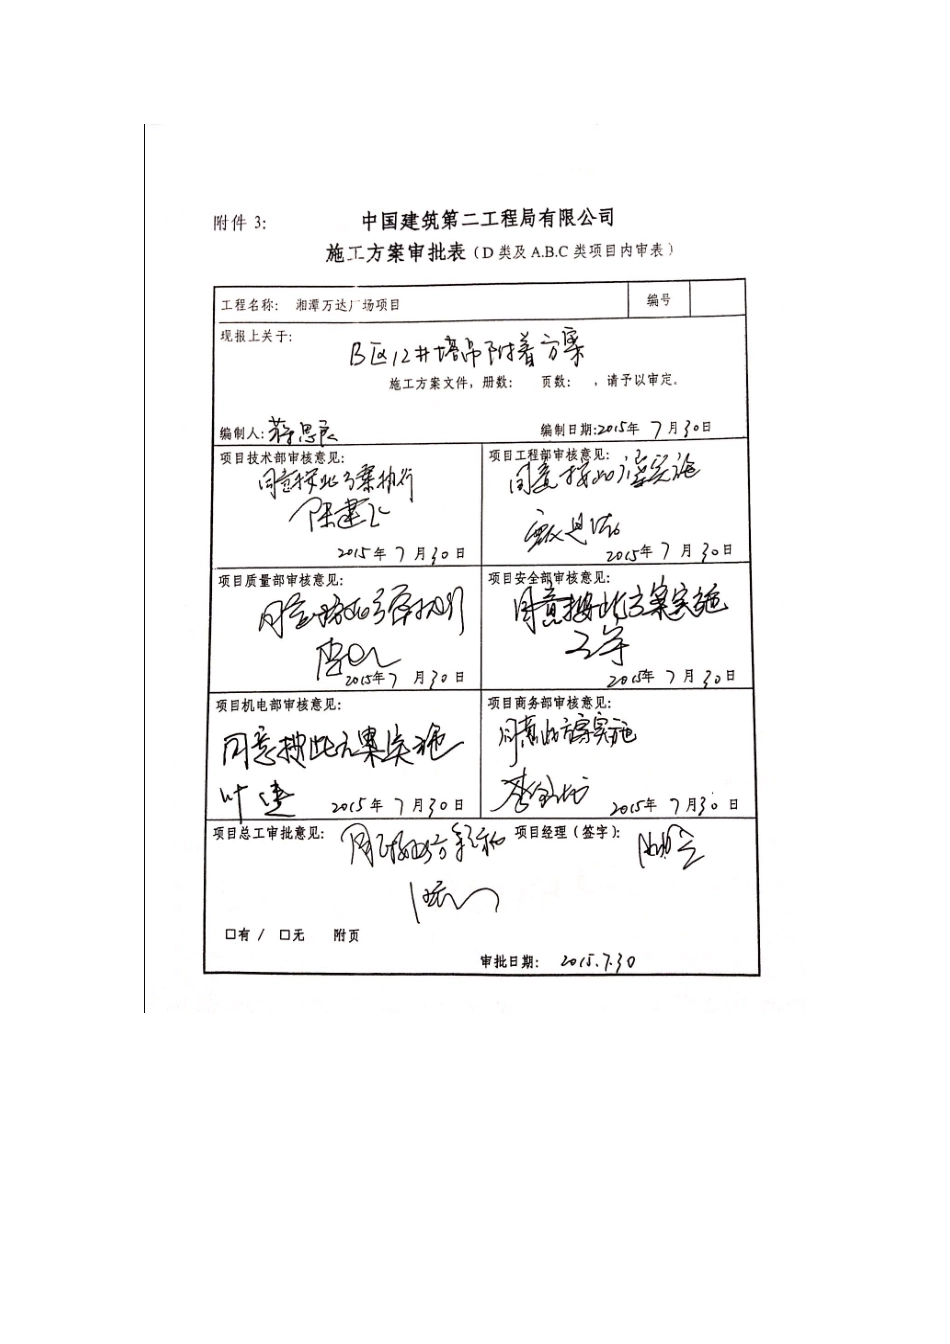 附件 3:
中国建筑第二工程局有限公司
施工方案审批表（D 类及 A.B.C 类项目内审表）
工程名称： 湘潭万达广场项目
编号
现报上关于：
B区12#塔吊附着方案
施工方案文件，册数： 页数： ，请予以审定。
编制人：蒋思良
编制日期：2015年 7月30日
项目技术部审核意见：
同意按此方案执行
2015年 7月30日
项目工程部审核意见：
同意按此方案实施
2015年 7月30日
项目质量部审核意见：
同意按此方案执行
2015年7月30日
项目安全部审核意见：
同意按此方案实施
2015年 7月30日
项目机电部审核意见：
同意按此方案实施
2015年 7月30日
项目商务部审核意见：
同意此方案实施
2015年 7月30日
项目总工审批意见：
项目经理（签字）：
□有 / □无 附页
审批日期： 2015.7.30